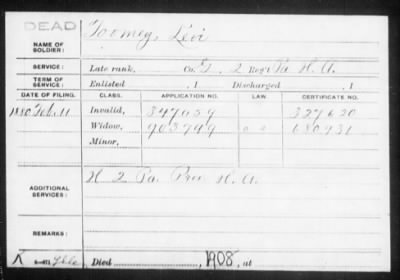 DEAD
NAME OF SOLDIER: Toomey, Levi
SERVICE: Late rank, Co. G, 2 Reg't Pa H. A.
TERM OF SERVICE: Enlisted , 1 Discharged , 1
DATE OF FILING. CLASS. APPLICATION NO. LAW. CERTIFICATE NO.
1880 Feb. 11 Invalid, 347059 327620
Widow, 903749 680931
Minor,
ADDITIONAL SERVICES: H 2 Pa. Prov. H. A.
REMARKS:
Died 1908, at